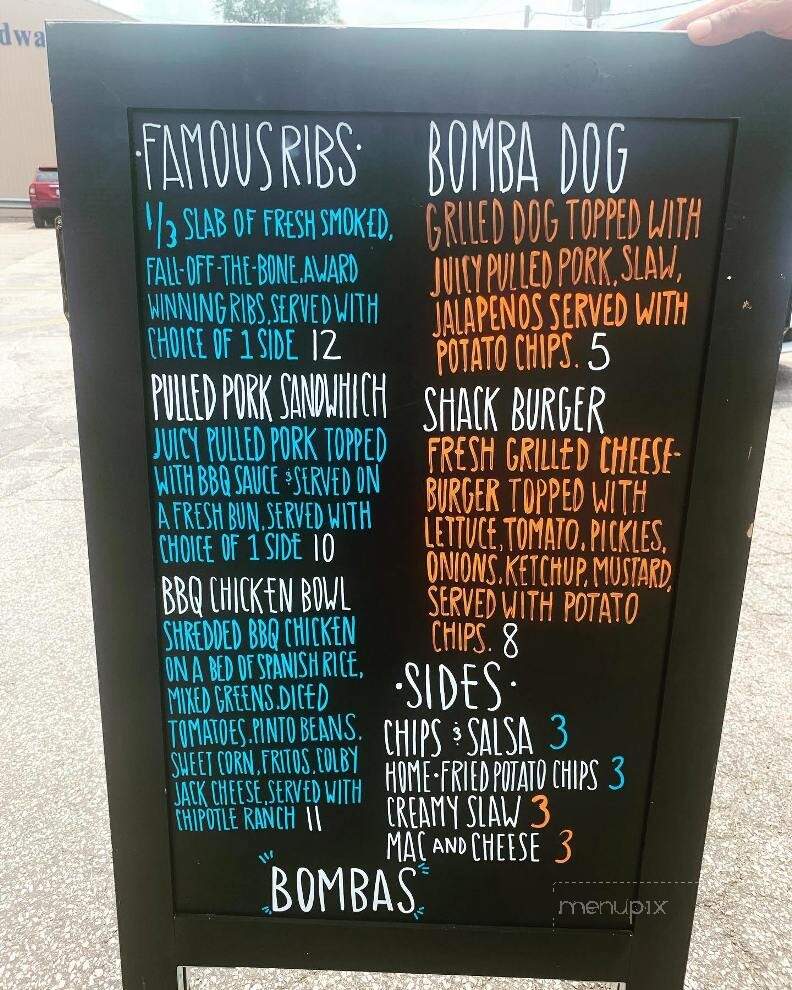 dwa
·FAMOUS RIBS·
1/3 SLAB OF FRESH SMOKED,
FALL-OFF-THE-BONE, AWARD
WINNING RIBS, SERVED WITH
CHOICE OF 1 SIDE 12
PULLED PORK SANDWHICH
JUICY PULLED PORK TOPPED
WITH BBQ SAUCE & SERVED ON
A FRESH BUN, SERVED WITH
CHOICE OF 1 SIDE 10
BBQ CHICKEN BOWL
SHREDDED BBQ CHICKEN
ON A BED OF SPANISH RICE,
MIXED GREENS, DICED
TOMATOES, PINTO BEANS,
SWEET CORN, FRITOS, COLBY
JACK CHEESE, SERVED WITH
CHIPOTLE RANCH 11
BOMBA DOG
GRLLED DOG TOPPED WITH
JUICY PULLED PORK, SLAW,
JALAPENOS SERVED WITH
POTATO CHIPS. 5
SHACK BURGER
FRESH GRILLED CHEESE-
BURGER TOPPED WITH
LETTUCE, TOMATO, PICKLES,
ONIONS, KETCHUP, MUSTARD,
SERVED WITH POTATO
CHIPS. 8
·SIDES·
CHIPS & SALSA 3
HOME-FRIED POTATO CHIPS 3
CREAMY SLAW 3
MAC AND CHEESE 3
BOMBAS
menupix